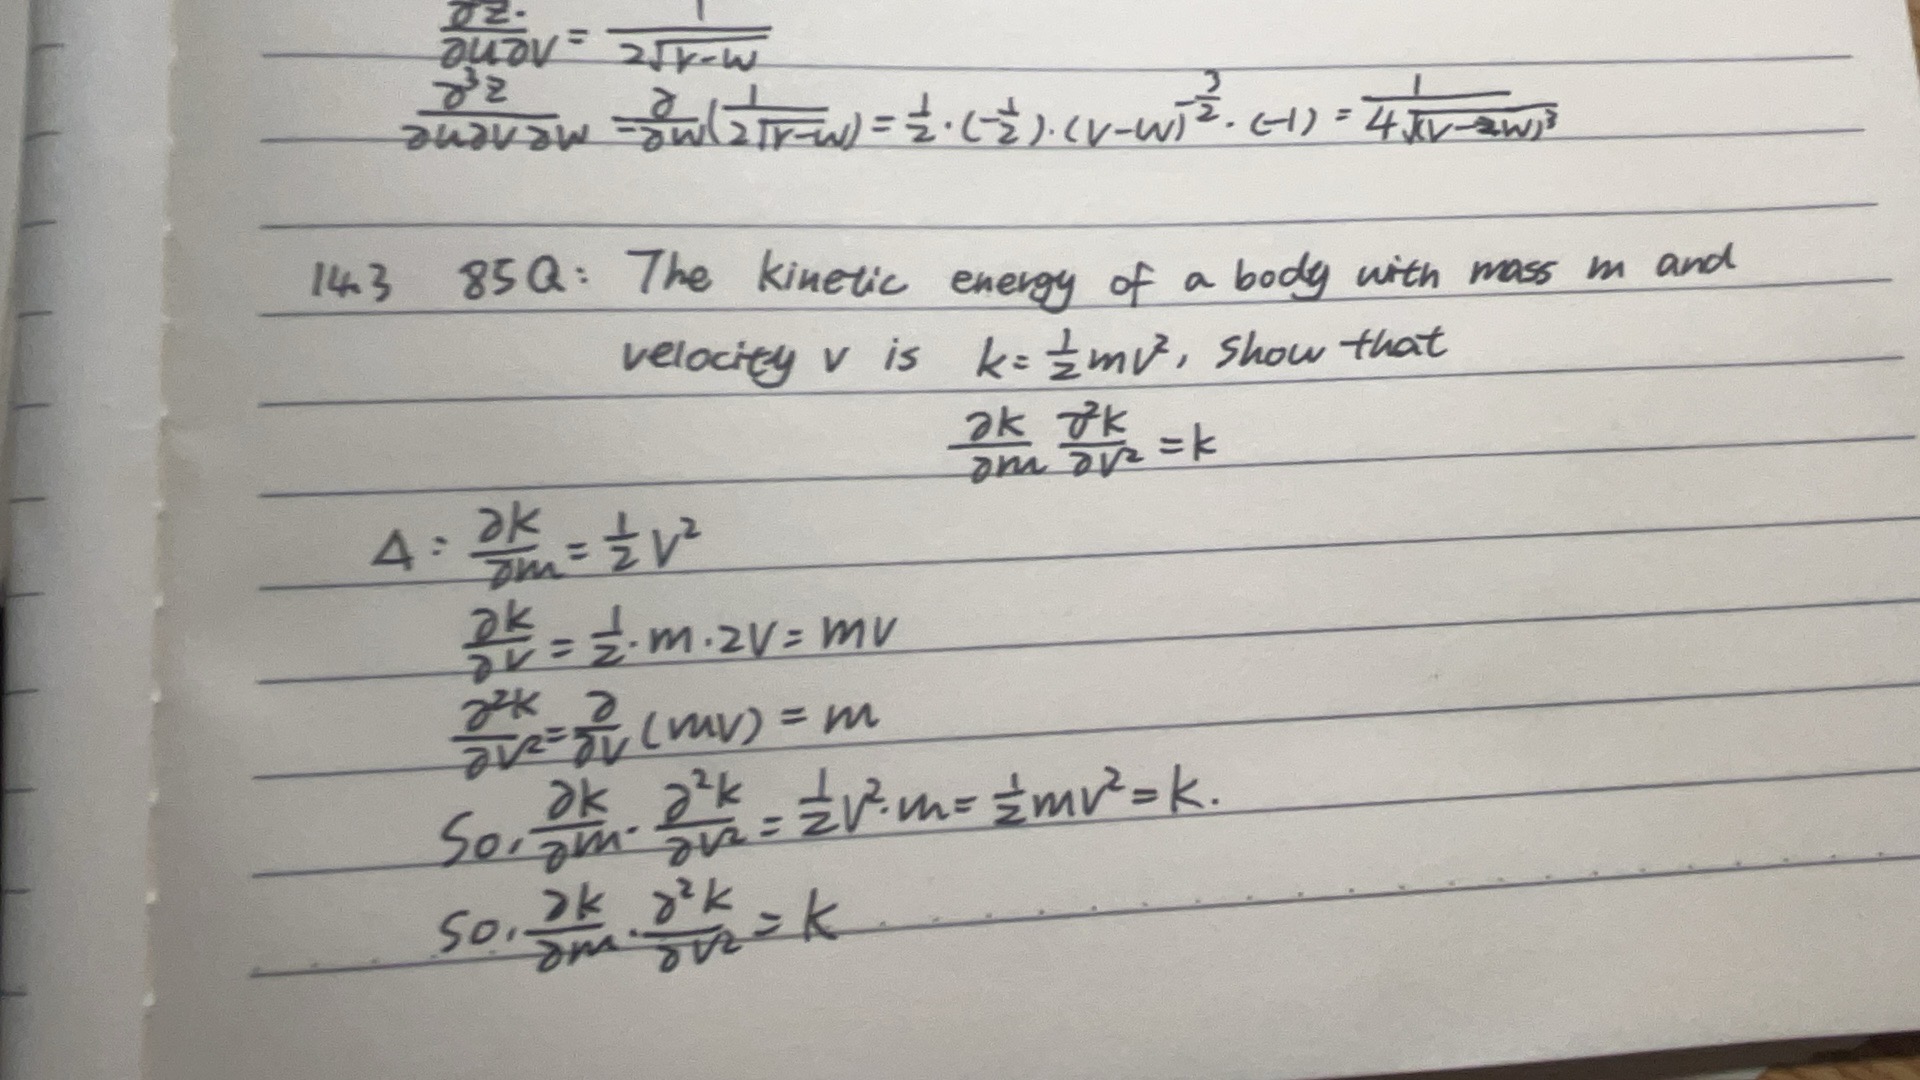 ∂z/∂u∂v = 1/(2√(v-w))
∂³z/∂u∂v∂w = ∂/∂w(1/(2√(v-w))) = 1/2·(-1/2)·(v-w)^(-3/2)·(-1) = 1/(4√((v-w)³))
14.3 85Q: The kinetic energy of a body with mass m and
velocity v is k=½mv², show that
∂k/∂m ∂²k/∂v² = k
A: ∂k/∂m = ½v²
∂k/∂v = ½·m·2v = mv
∂²k/∂v² = ∂/∂v (mv) = m
So, ∂k/∂m · ∂²k/∂v² = ½v²·m = ½mv² = k.
So, ∂k/∂m · ∂²k/∂v² = k